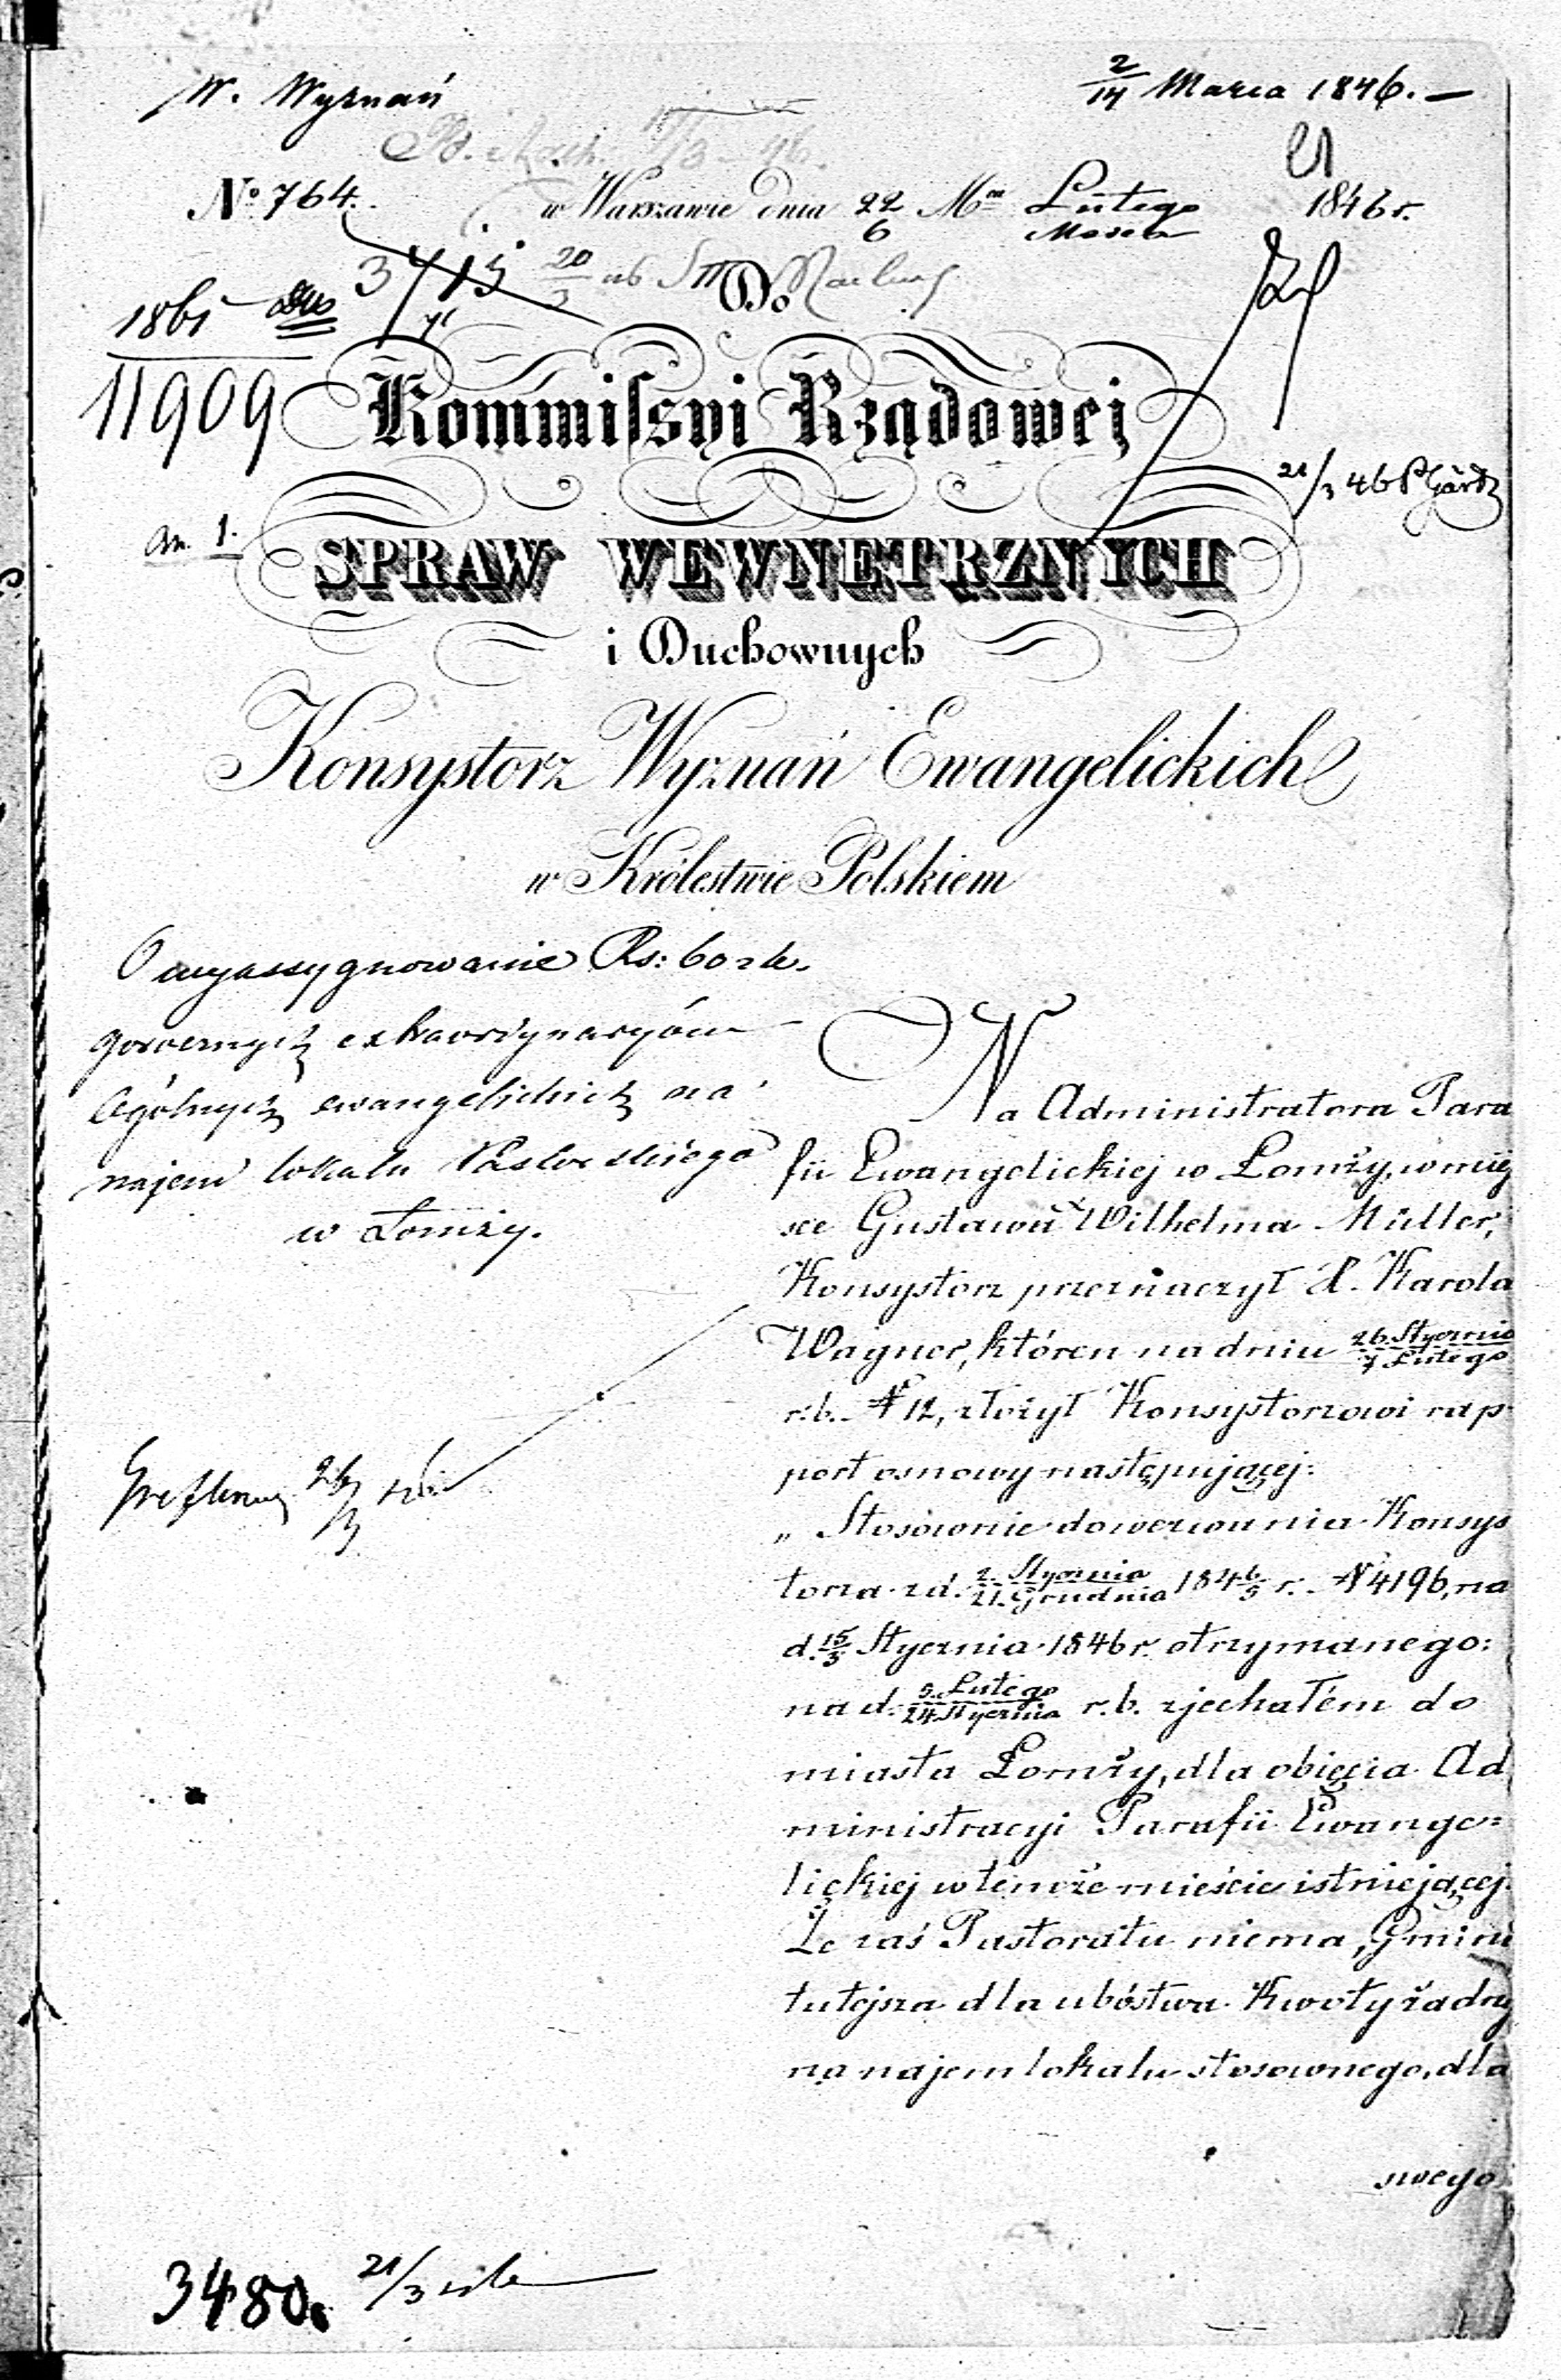 W. Wyznań
2/14 Marca 1846. —
21
No 764.
w Warszawie dnia 22/6 Mca Lutego/Marca 1846 r.
3715
20/3
Do
1861
11909
Kommissyi Rządowej
21/3 46
An. 1.
SPRAW WEWNETRZNYCH
i Duchownych
Konsystorz Wyznań Ewangelickich
w Królestwie Polskiem
O wyassygnowanie Rs: 60 z
extraordynaryów
ogólnych ewangelickich na
najem lokalu Pastorskiego
w Łomży.
Na Administratora Para
fii Ewangelickiej w Łomży, w miej
sce Gustawa Wilhelma Müller,
Konsystorz przeznaczył X. Karola
Wagner, któren na dniu 26. Stycznia/7 Lutego
r. b. N 12, złożył Konsystorzowi rap
port osnowy następującej:
„ Stosownie do wezwania Konsys
torza z d. 2. Stycznia/21. Grudnia 1846/5 r. N 4196, na
d. 15/3 Stycznia 1846 r. otrzymanego:
na d. 5. Lutego/24 Stycznia r. b. zjechałem do
miasta Łomży, dla objęcia Ad
ministracyi Parafii Ewange=
lickiej w temże mieście istniejącej.
Że zaś Pastoratu niema, Gmina
tutejsza dla ubóstwa Kwoty żadnej
na najem lokalu stosownego, dla
swego
3480.
21/3